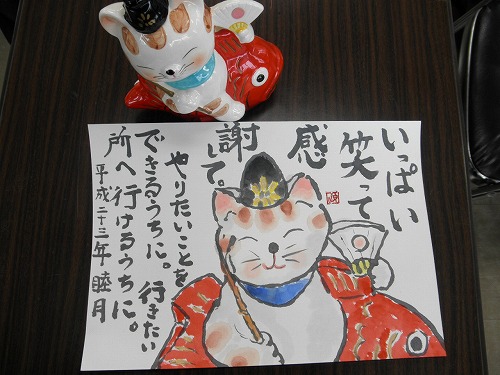 いっぱい
笑って
感
謝して。
やりたいことを
できるうちに。行きたい
所へ行けるうちに。
平成二十三年 睦月